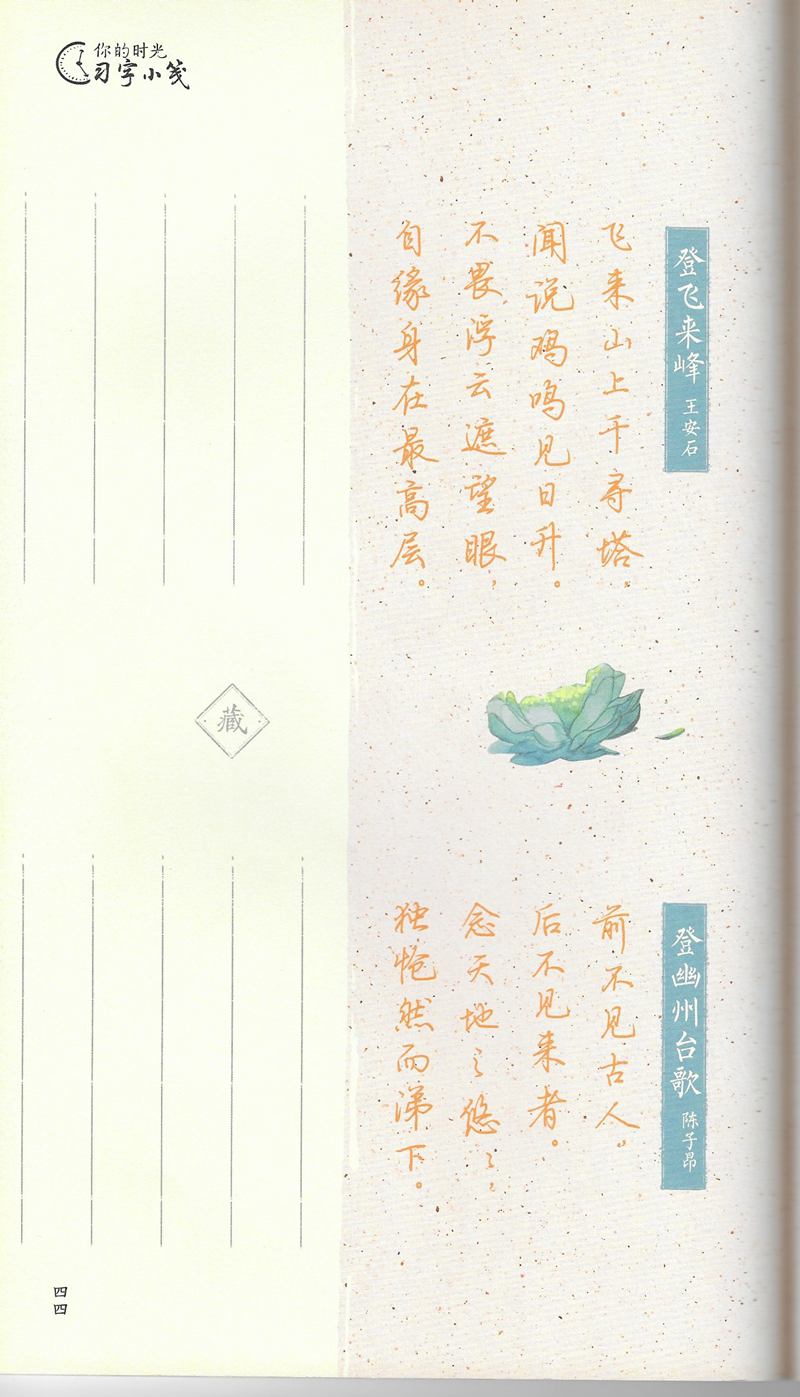 你的时光
习字小笺
登飞来峰 王安石
飞来山上千寻塔,
闻说鸡鸣见日升。
不畏浮云遮望眼,
自缘身在最高层。
藏
登幽州台歌 陈子昂
前不见古人。
后不见来者。
念天地之悠々,
独怆然而涕下。
四四